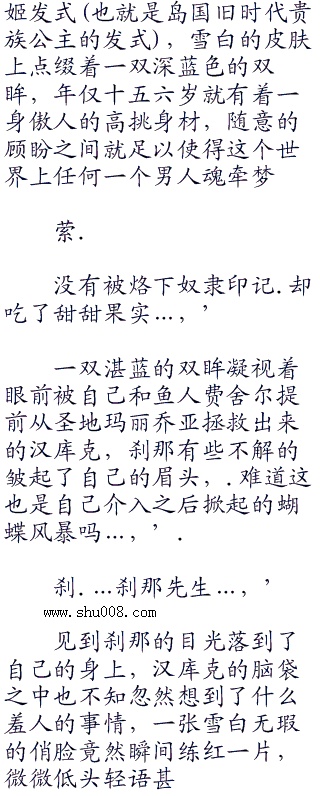 姬发式(也就是岛国旧时代贵
族公主的发式)，雪白的皮肤
上点缀着一双深蓝色的双
眸，年仅十五六岁就有着一
身傲人的高挑身材，随意的
顾盼之间就足以使得这个世
界上任何一个男人魂牵梦
萦.
没有被烙下奴隶印记.却
吃了甜甜果实…，’
一双湛蓝的双眸凝视着
眼前被自己和鱼人费舍尔提
前从圣地玛丽乔亚拯救出来
的汉库克，刹那有些不解的
皱起了自己的眉头，.难道这
也是自己介入之后掀起的蝴
蝶风暴吗…，’.
刹.…刹那先生…，’
www.shu008.com
见到刹那的目光落到了
自己的身上，汉库克的脑袋
之中也不知忽然想到了什么
羞人的事情，一张雪白无瑕
的俏脸竟然瞬间练红一片，
微微低头轻语甚